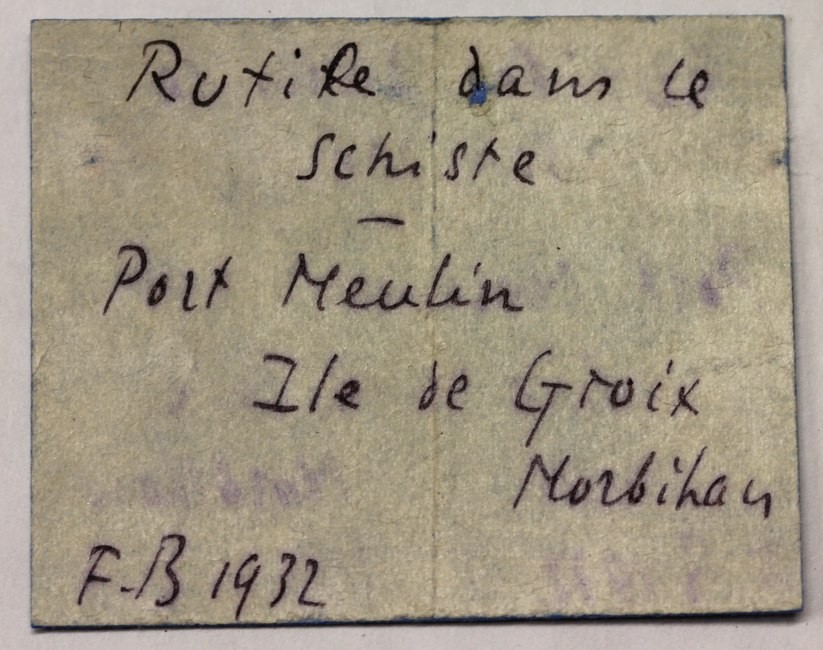 Rutile dans le
Schiste
—
Port Meulin
Ile de Groix
Morbihan
F-B 1932